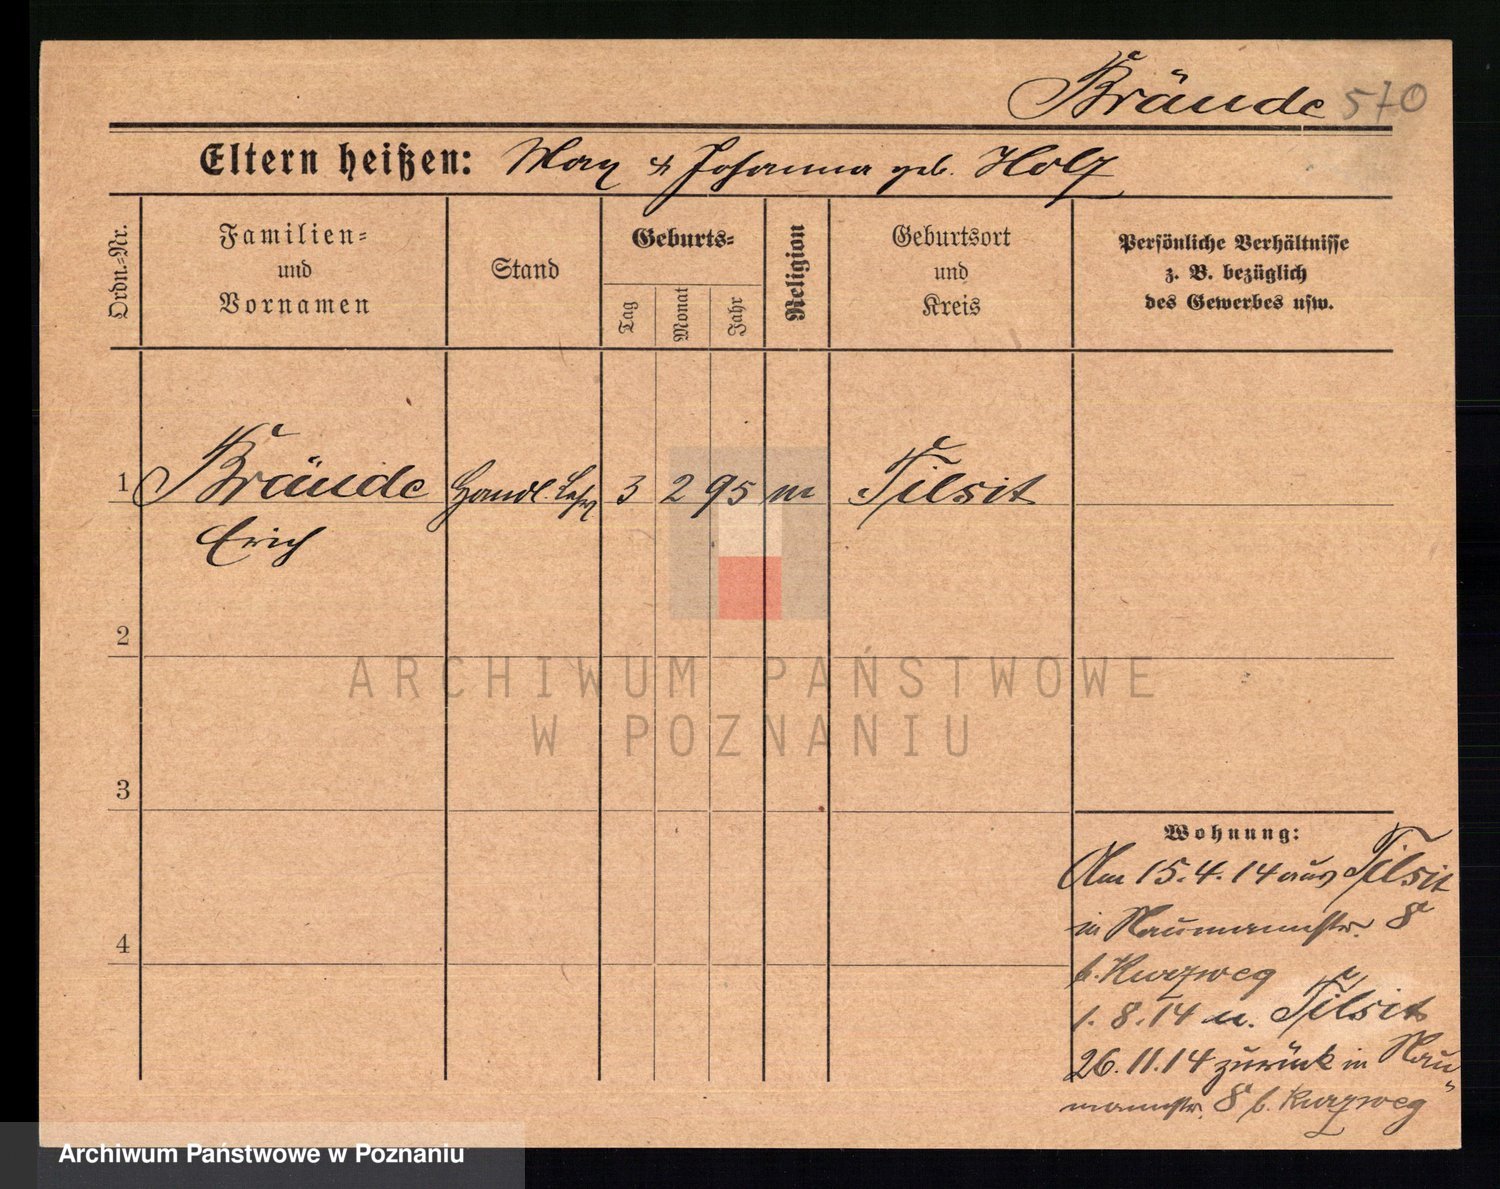 Brände 570
Eltern heißen: Max & Johanna geb. Holz
Ordn.-Nr.
Familien-
und
Vornamen
Stand
Geburts-
Tag
Monat
Jahr
Religion
Geburtsort
und
Kreis
Persönliche Verhältnisse
z. B. bezüglich
des Gewerbes usw.
1 Brände Handl. 3 2 95 m Tilsit
Erich
2
3
4
ARCHIWUM PAŃSTWOWE
W POZNANIU
Wohnung:
Am 15.4.14 aus Tilsit
in Naumannstr. 8
b. Kurzweg
1.8.14 n. Tilsit
26.11.14 zurück in Nau-
mannstr. 8 b. Kurzweg
Archiwum Państwowe w Poznaniu